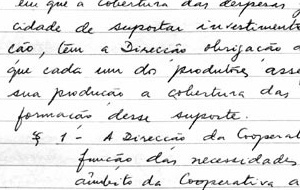 em que a cobertura das despesas g
cidade de suportar investiment
ção, tem a Direcção obrigação d
que cada um dos "produtores" asse
sua produção a cobertura das
formação desse suporte.
§ 1 - A Direcção da Cooperat
função das necessidades
âmbito da Cooperativa a